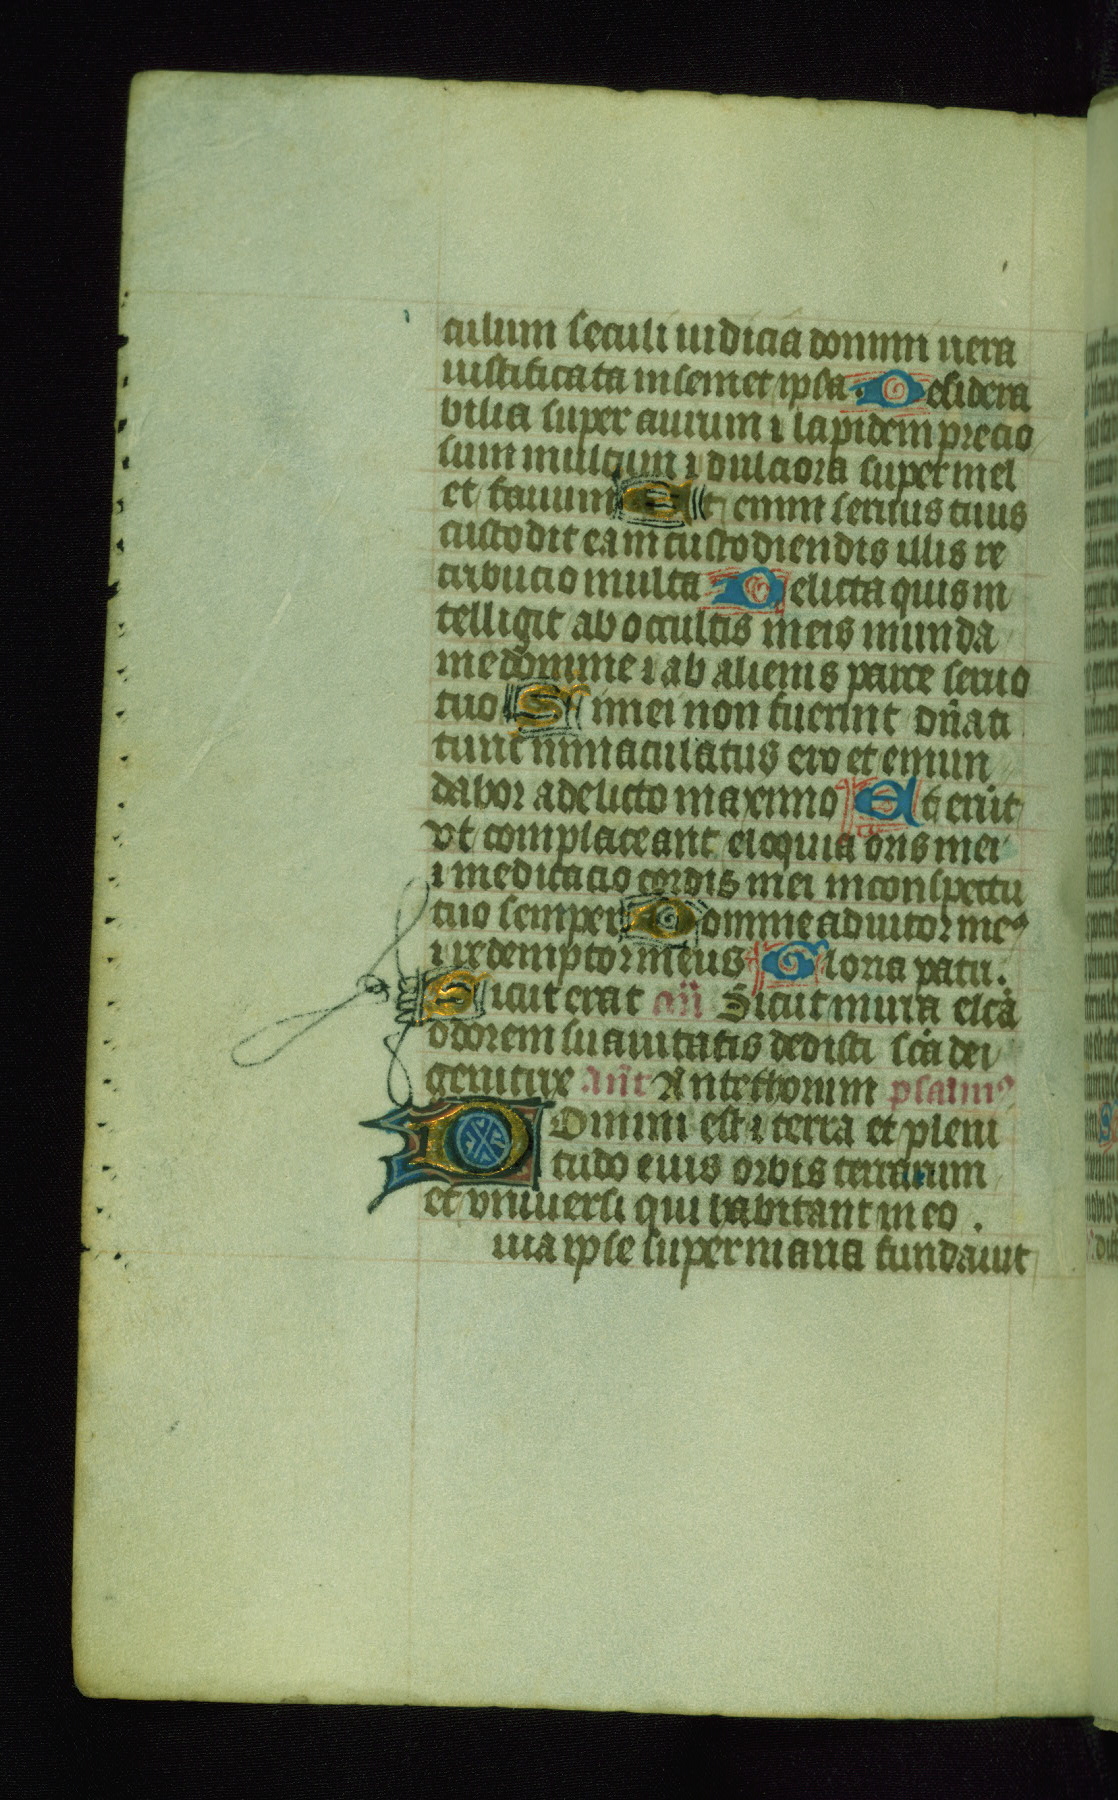 culum seculi iudicia domini uera
iustificata in semet ipsa. Desidera
bilia super aurum ⁊ lapidem precio
sum multum ⁊ dulciora super mel
et fauum Et enim seruus tuus
custodit ea in custodiendis illis re
tribucio multa Delicta quis in
telligit ab occultis meis munda
me domine ⁊ ab alienis parce seruo
tuo Si mei non fuerint dn̄ati
tunc inmaculatus ero et emun
dabor a delicto maximo Et erūt
vt complaceant eloquia oris mei
⁊ meditacio cordis mei in conspectu
tuo semper Domine adiutor meꝰ
⁊ redemptor meus Gloria patri.
Sicut erat añ Sicut mirra elcā
odorem suauitatis dedisti scā dei
genitrix Ant̄ Ante thorum psalmꝰ
Domini est ⁊ terra et pleni
tudo eius orbis terrarum
et vniuersi qui habitant in eo .
uia ipse super maria fundauit